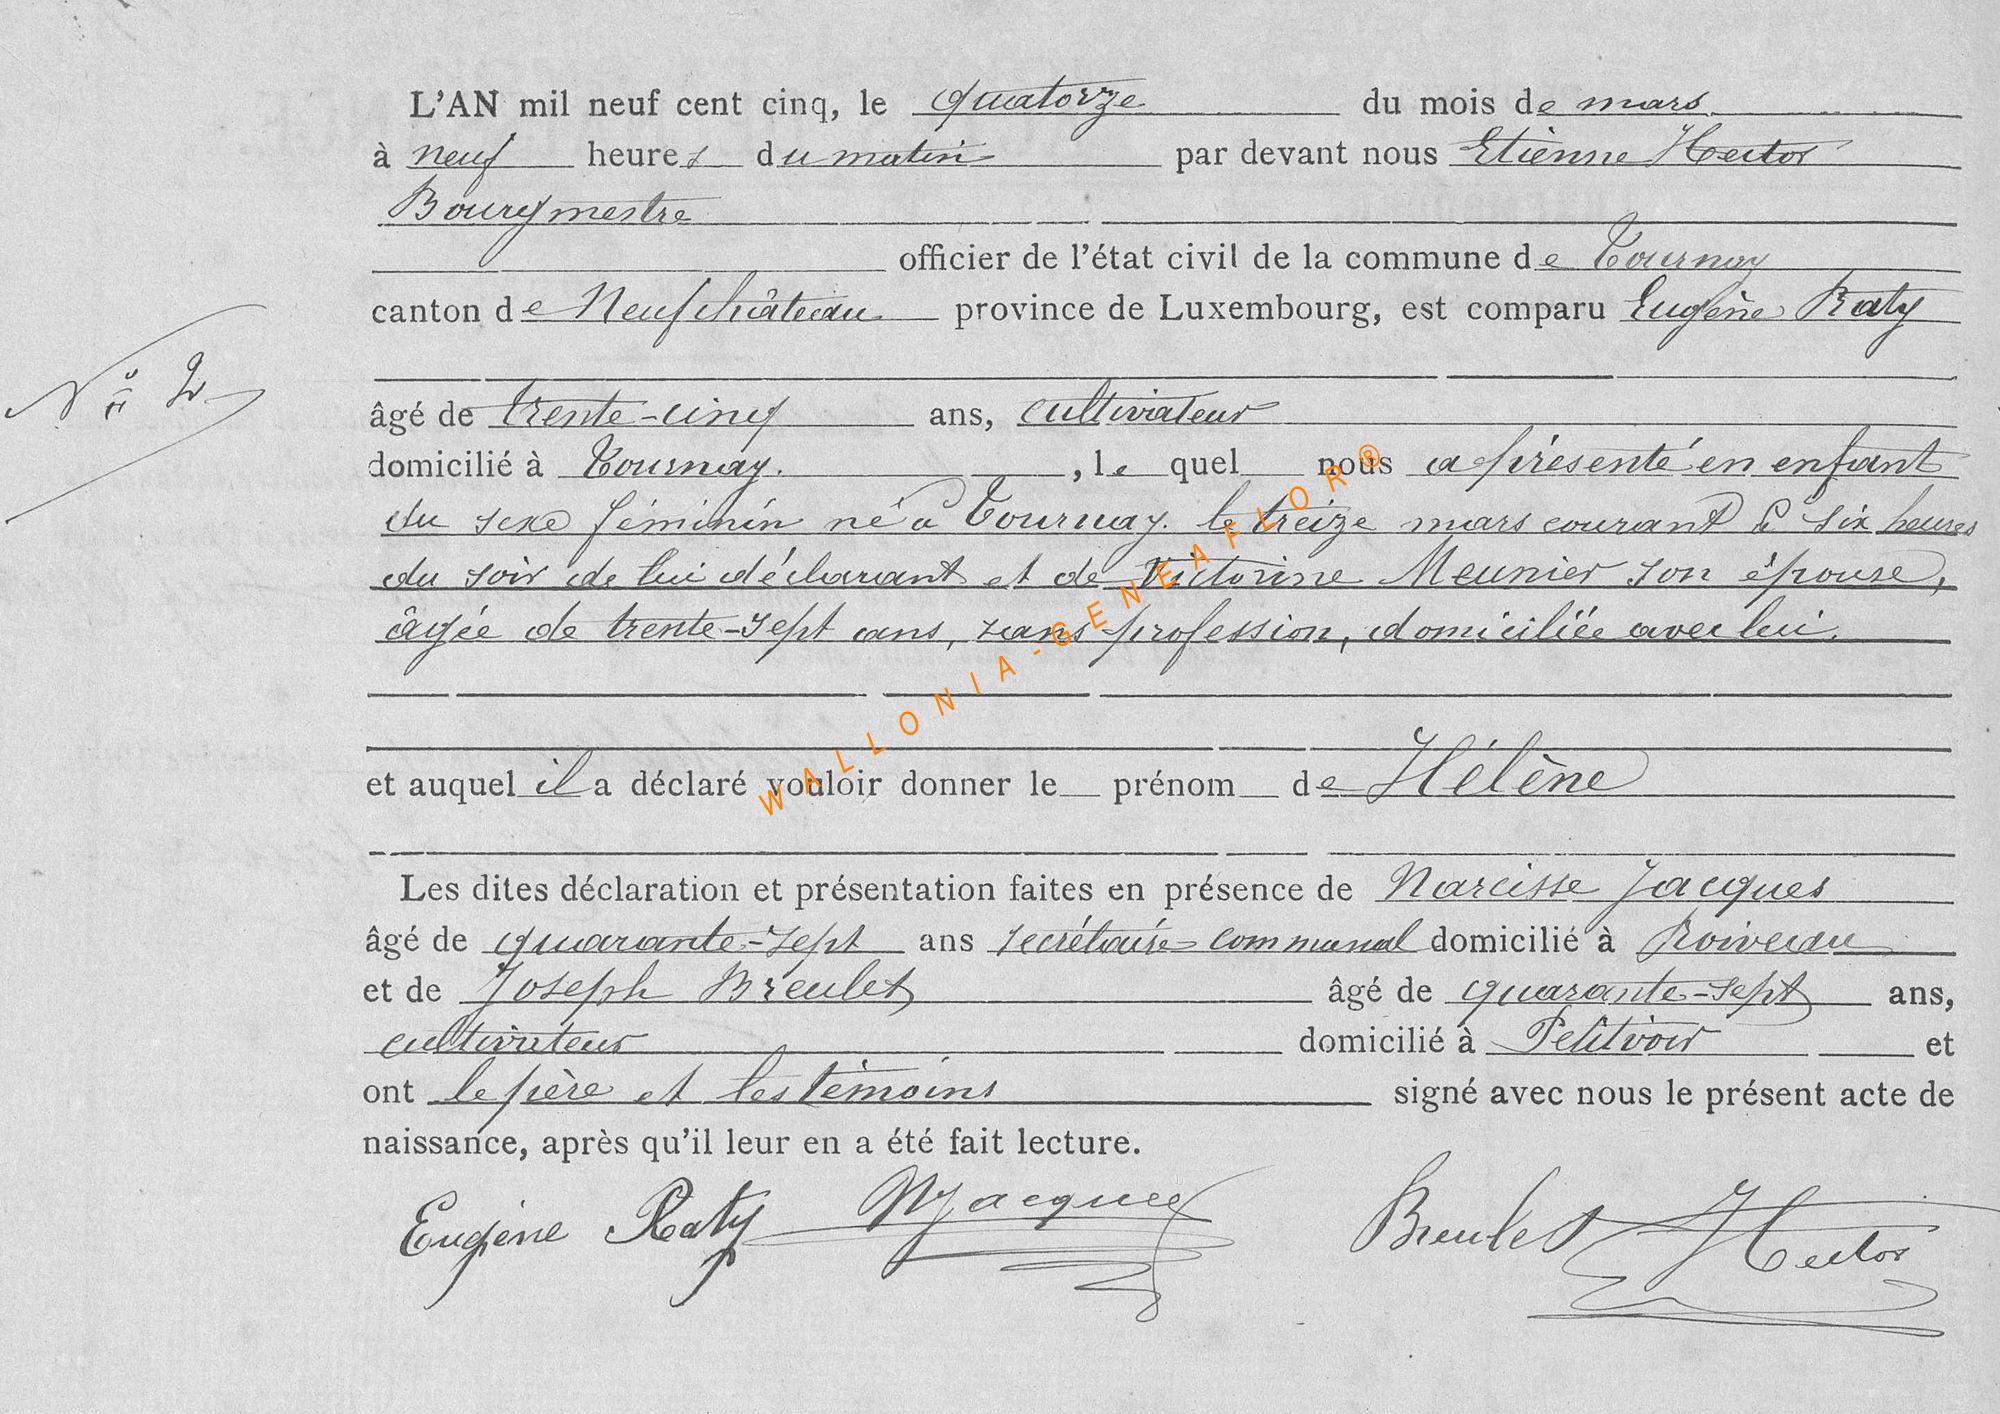 L'AN mil neuf cent cinq, le quatorze du mois de mars
à neuf heures du matin par devant nous Etienne Hector
Bourgmestre
officier de l'état civil de la commune de Tournay
canton de Neufchâteau province de Luxembourg, est comparu Eugène Raty
N° 2
âgé de trente-cinq ans, cultivateur
domicilié à Tournay. , le quel nous a présenté en enfant
du sexe féminin né à Tournay. le treize mars courant à six heures
du soir de lui déclarant et de Victorine Meunier son épouse,
âgée de trente-sept ans, sans profession, domiciliée avec lui.
et auquel il a déclaré vouloir donner le prénom de Hélène
Les dites déclaration et présentation faites en présence de Narcisse Jacques
âgé de quarante-sept ans secrétaire communal domicilié à Roiveau
et de Joseph Breulet âgé de quarante-sept ans,
cultivateur domicilié à Petitvoir et
ont le père et les témoins signé avec nous le présent acte de
naissance, après qu'il leur en a été fait lecture.
Eugène Raty NJacques Breulet Hector
WALLONIA-GENEAFLOR®